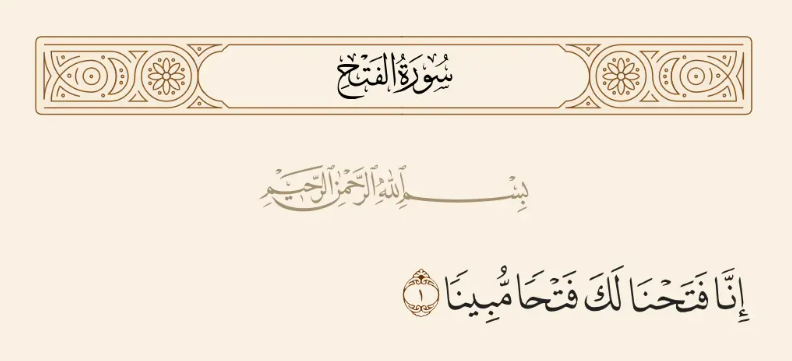 سُورَةُ الفَتْحِ
بِسْمِ اللَّهِ الرَّحْمَٰنِ الرَّحِيمِ
إِنَّا فَتَحْنَا لَكَ فَتْحًا مُّبِينًا ١